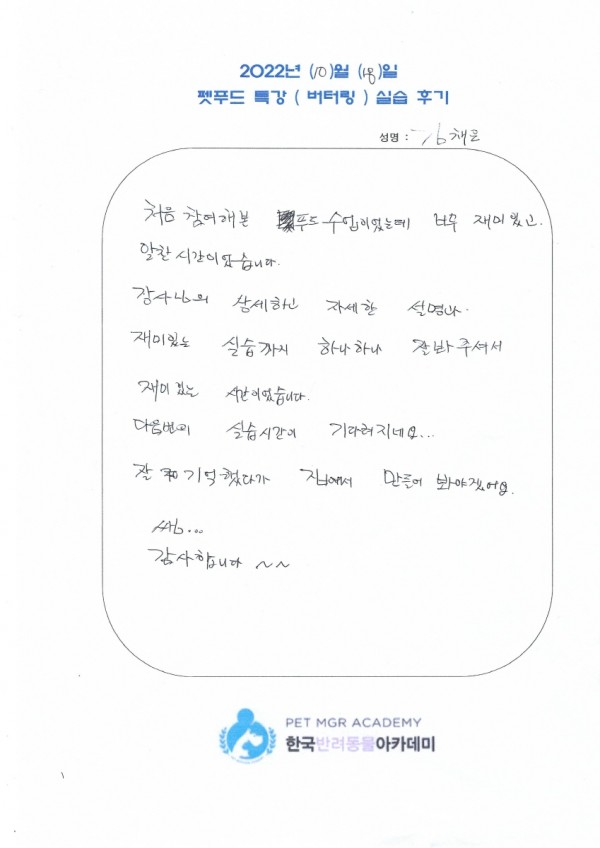 2022년 (10)월 (18)일
펫푸드 특강 ( 버터링 ) 실습 후기
성명 :
처음 참여해본 푸드 수업이었는데 너무 재미있고.
알찬 시간이었습니다.
강사님의 상세하고 자세한 설명과.
재미있는 실습까지 하나하나 잘봐주셔서
재미있는 시간이었습니다.
다음번의 실습시간이 기다려지네요...
잘 기억했다가 집에서 만들어 봐야겠어요.
감사합니다 ~~
PET MGR ACADEMY
한국반려동물아카데미